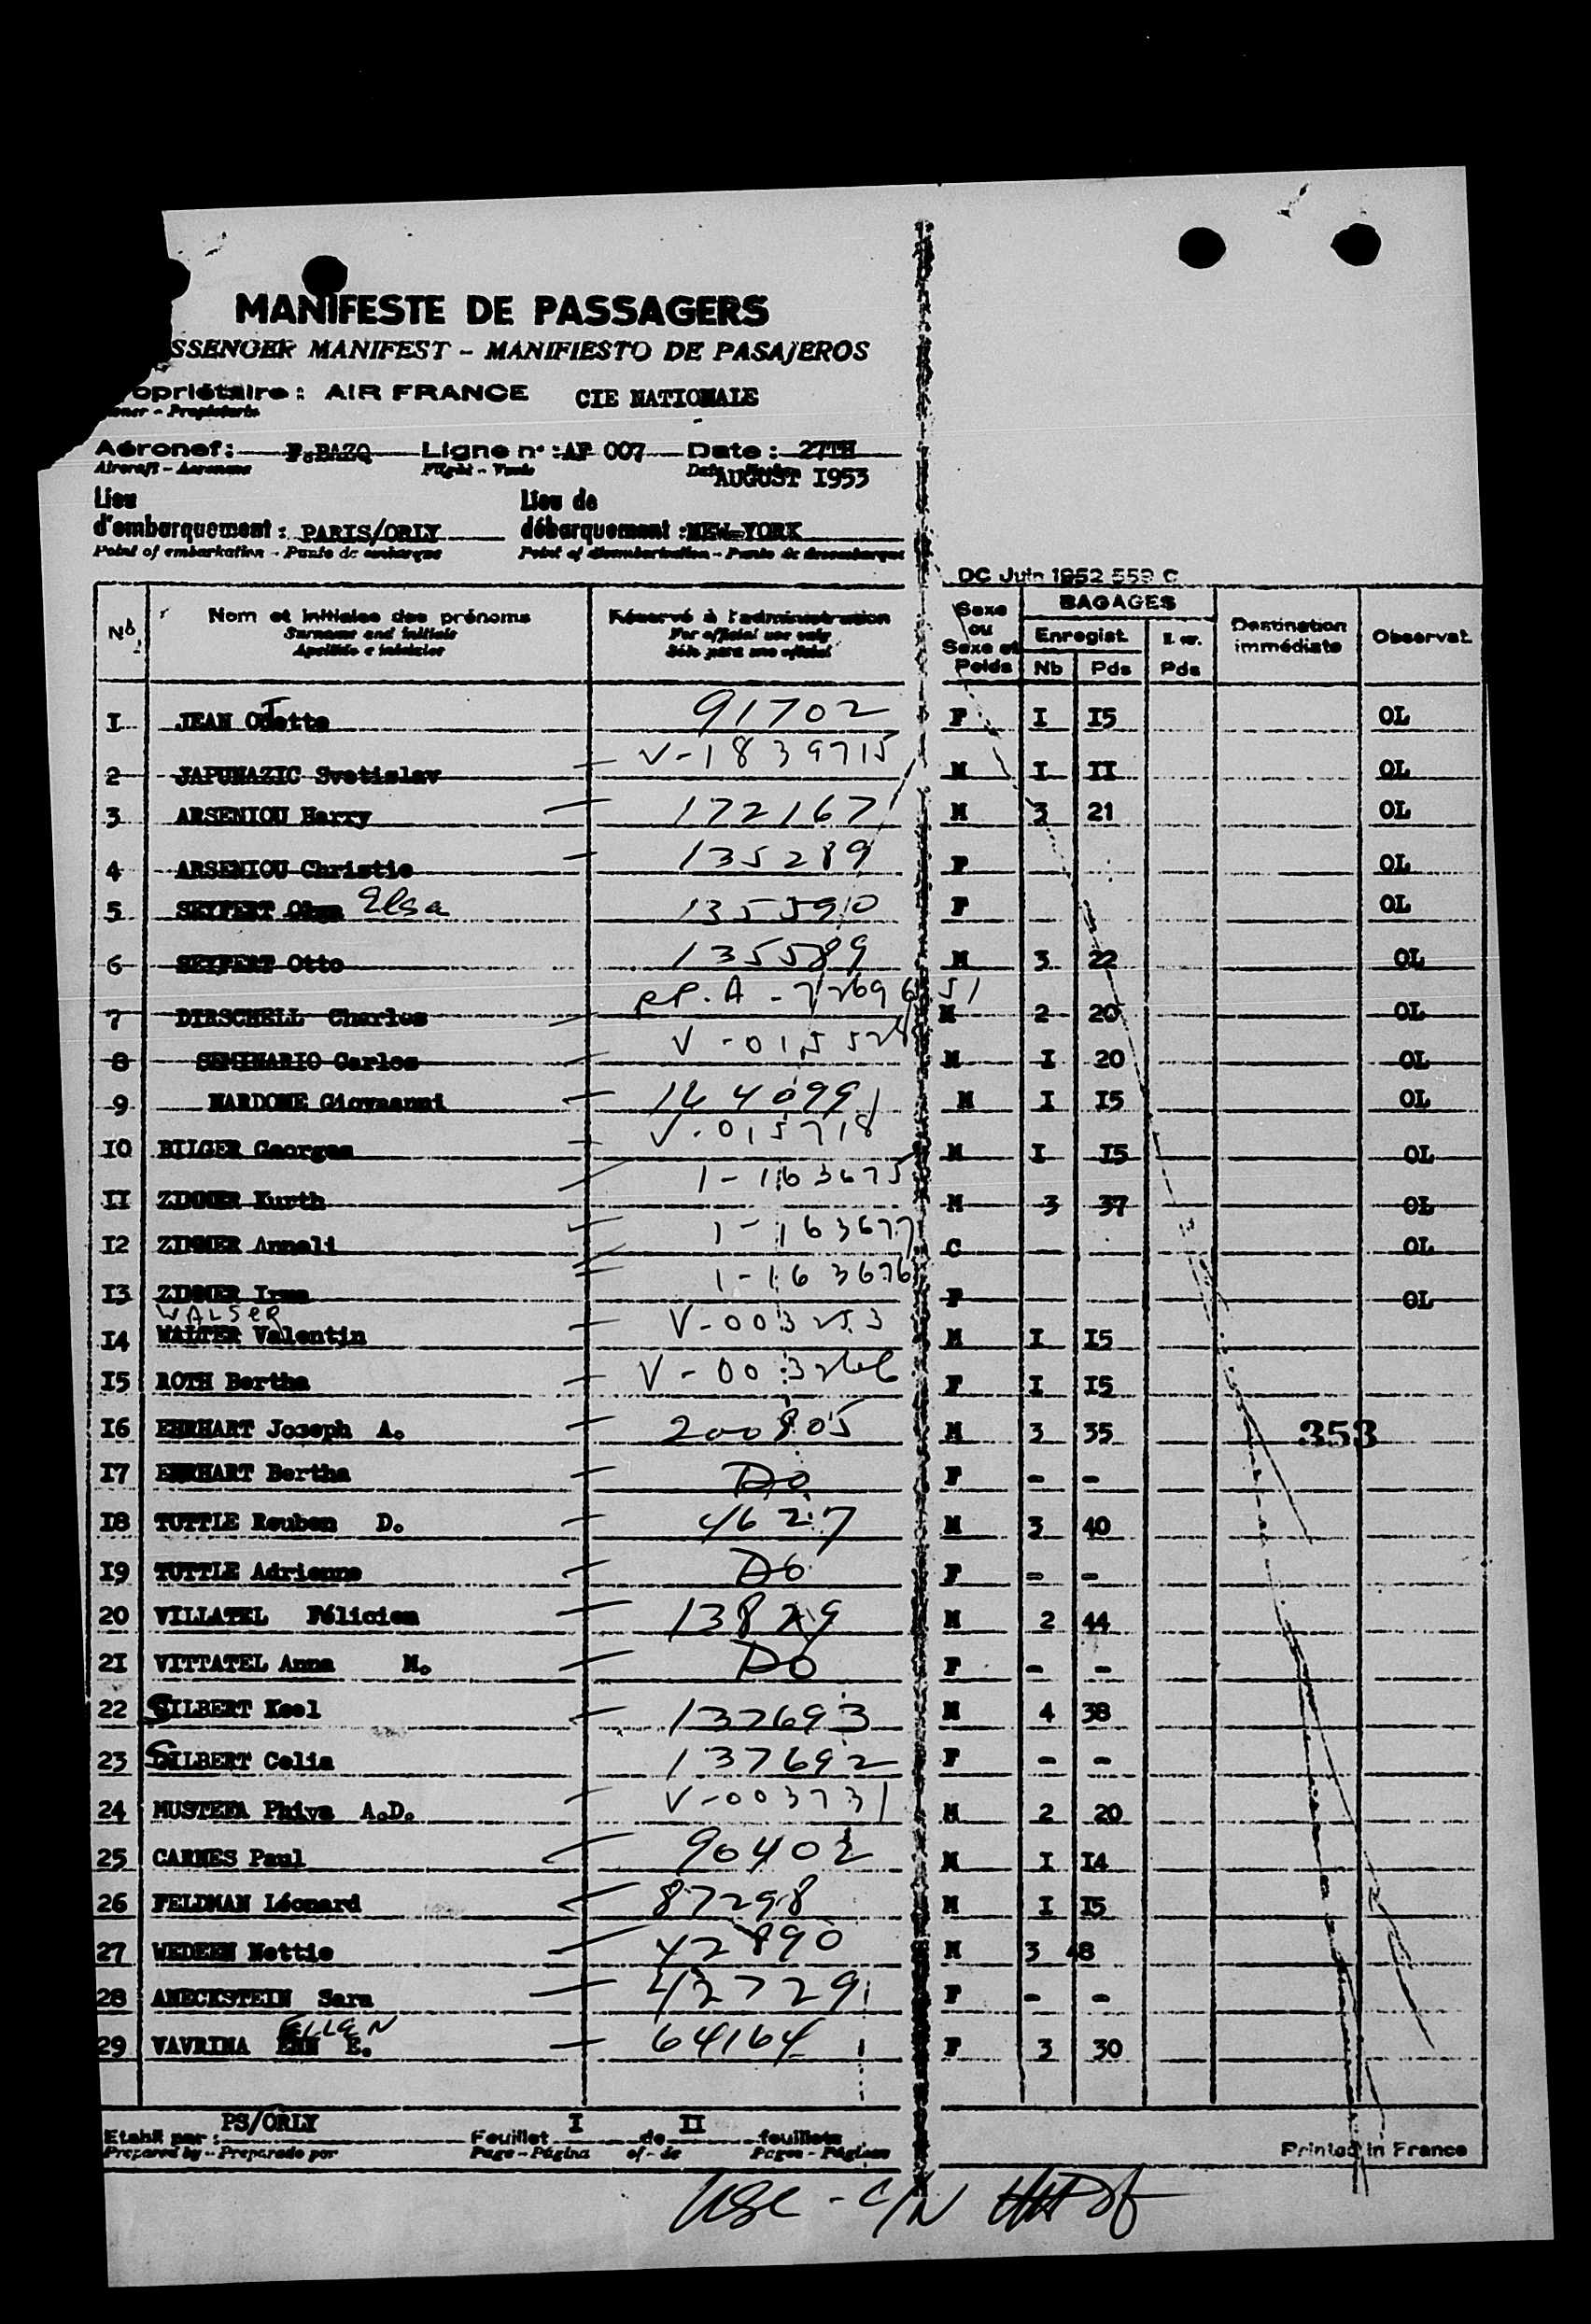 MANIFESTE DE PASSAGERS
SSENGER MANIFEST - MANIFIESTO DE PASAJEROS
opriétaire : AIR FRANCE CIE NATIONALE
Aéronef : F.BAZQ Ligne n° : AF 007 Date : 27TH
Aircraft - Aeronave Flight - Vuelo AUGUST 1953
Lieu Lieu de
d'embarquement : PARIS/ORLY débarquement : NEW-YORK
Point of embarkation - Punto de embarque Point of disembarkation - Punto de desembarque
DC Juin 1952 559 C
N° Nom et initiales des prénoms Réservé à l'administration Sexe ou Sexe et Poids BAGAGES Enregist. Nb Pds Pds Destination immédiate Observat.
Surname and initials For official use only
Apellido e iniciales Sólo para uso oficial
I JEAN Odette 91702 F I I5 OL
2 JAPUNAZIC Svetislav V-1839715 M I II OL
3 ARSENIOU Harry 172167 M 3 21 OL
4 ARSENIOU Christie 135289 F OL
5 SEYFERT Elsa 135590 F OL
6 SEYFERT Otto 135589 M 3 22 OL
7 DIRSCHELL Charles M 2 20 OL
8 SEMINARIO Carlos M I 20 OL
9 NARDONE Giovanni 144099 M I I5 OL
I0 BILGER Georges V-015718 M I I5 OL
II ZIMMER Kurth 1-163675 M 3 37 OL
I2 ZIMMER Anneli 1-163677 C OL
I3 ZIMMER Irma 1-163676 F OL
WALSER
I4 WALTER Valentin M I I5
I5 ROTH Bertha F I I5
I6 EHRHART Joseph A. 200805 M 3 35 353
I7 EHRHART Bertha Do F - -
I8 TUTTLE Reuben D. 4627 M 3 40
I9 TUTTLE Adrienne Do F - -
20 VILLATEL Félicien M 2 44
2I VITTATEL Anna M. Do F - -
22 SILBERT Keel 137693 M 4 38
23 SILBERT Celia 137692 F - -
24 MUSTEFA Phiva A.D. V-003731 M 2 20
25 CARNES Paul 90402 M I I4
26 FELDMAN Léonard 87298 M I I5
27 WEDEEN Nettie 42890 M 3 48
28 ANECKSTEIN Sara 42729 F - -
ELLEN
29 VAVRINA E. 64164 F 3 30
Etabli par : PS/ORLY Feuillet I de II feuillets
Prepared by - Preparado por Page - Página of - de Pages - Páginas Printed in France
USC - C/N